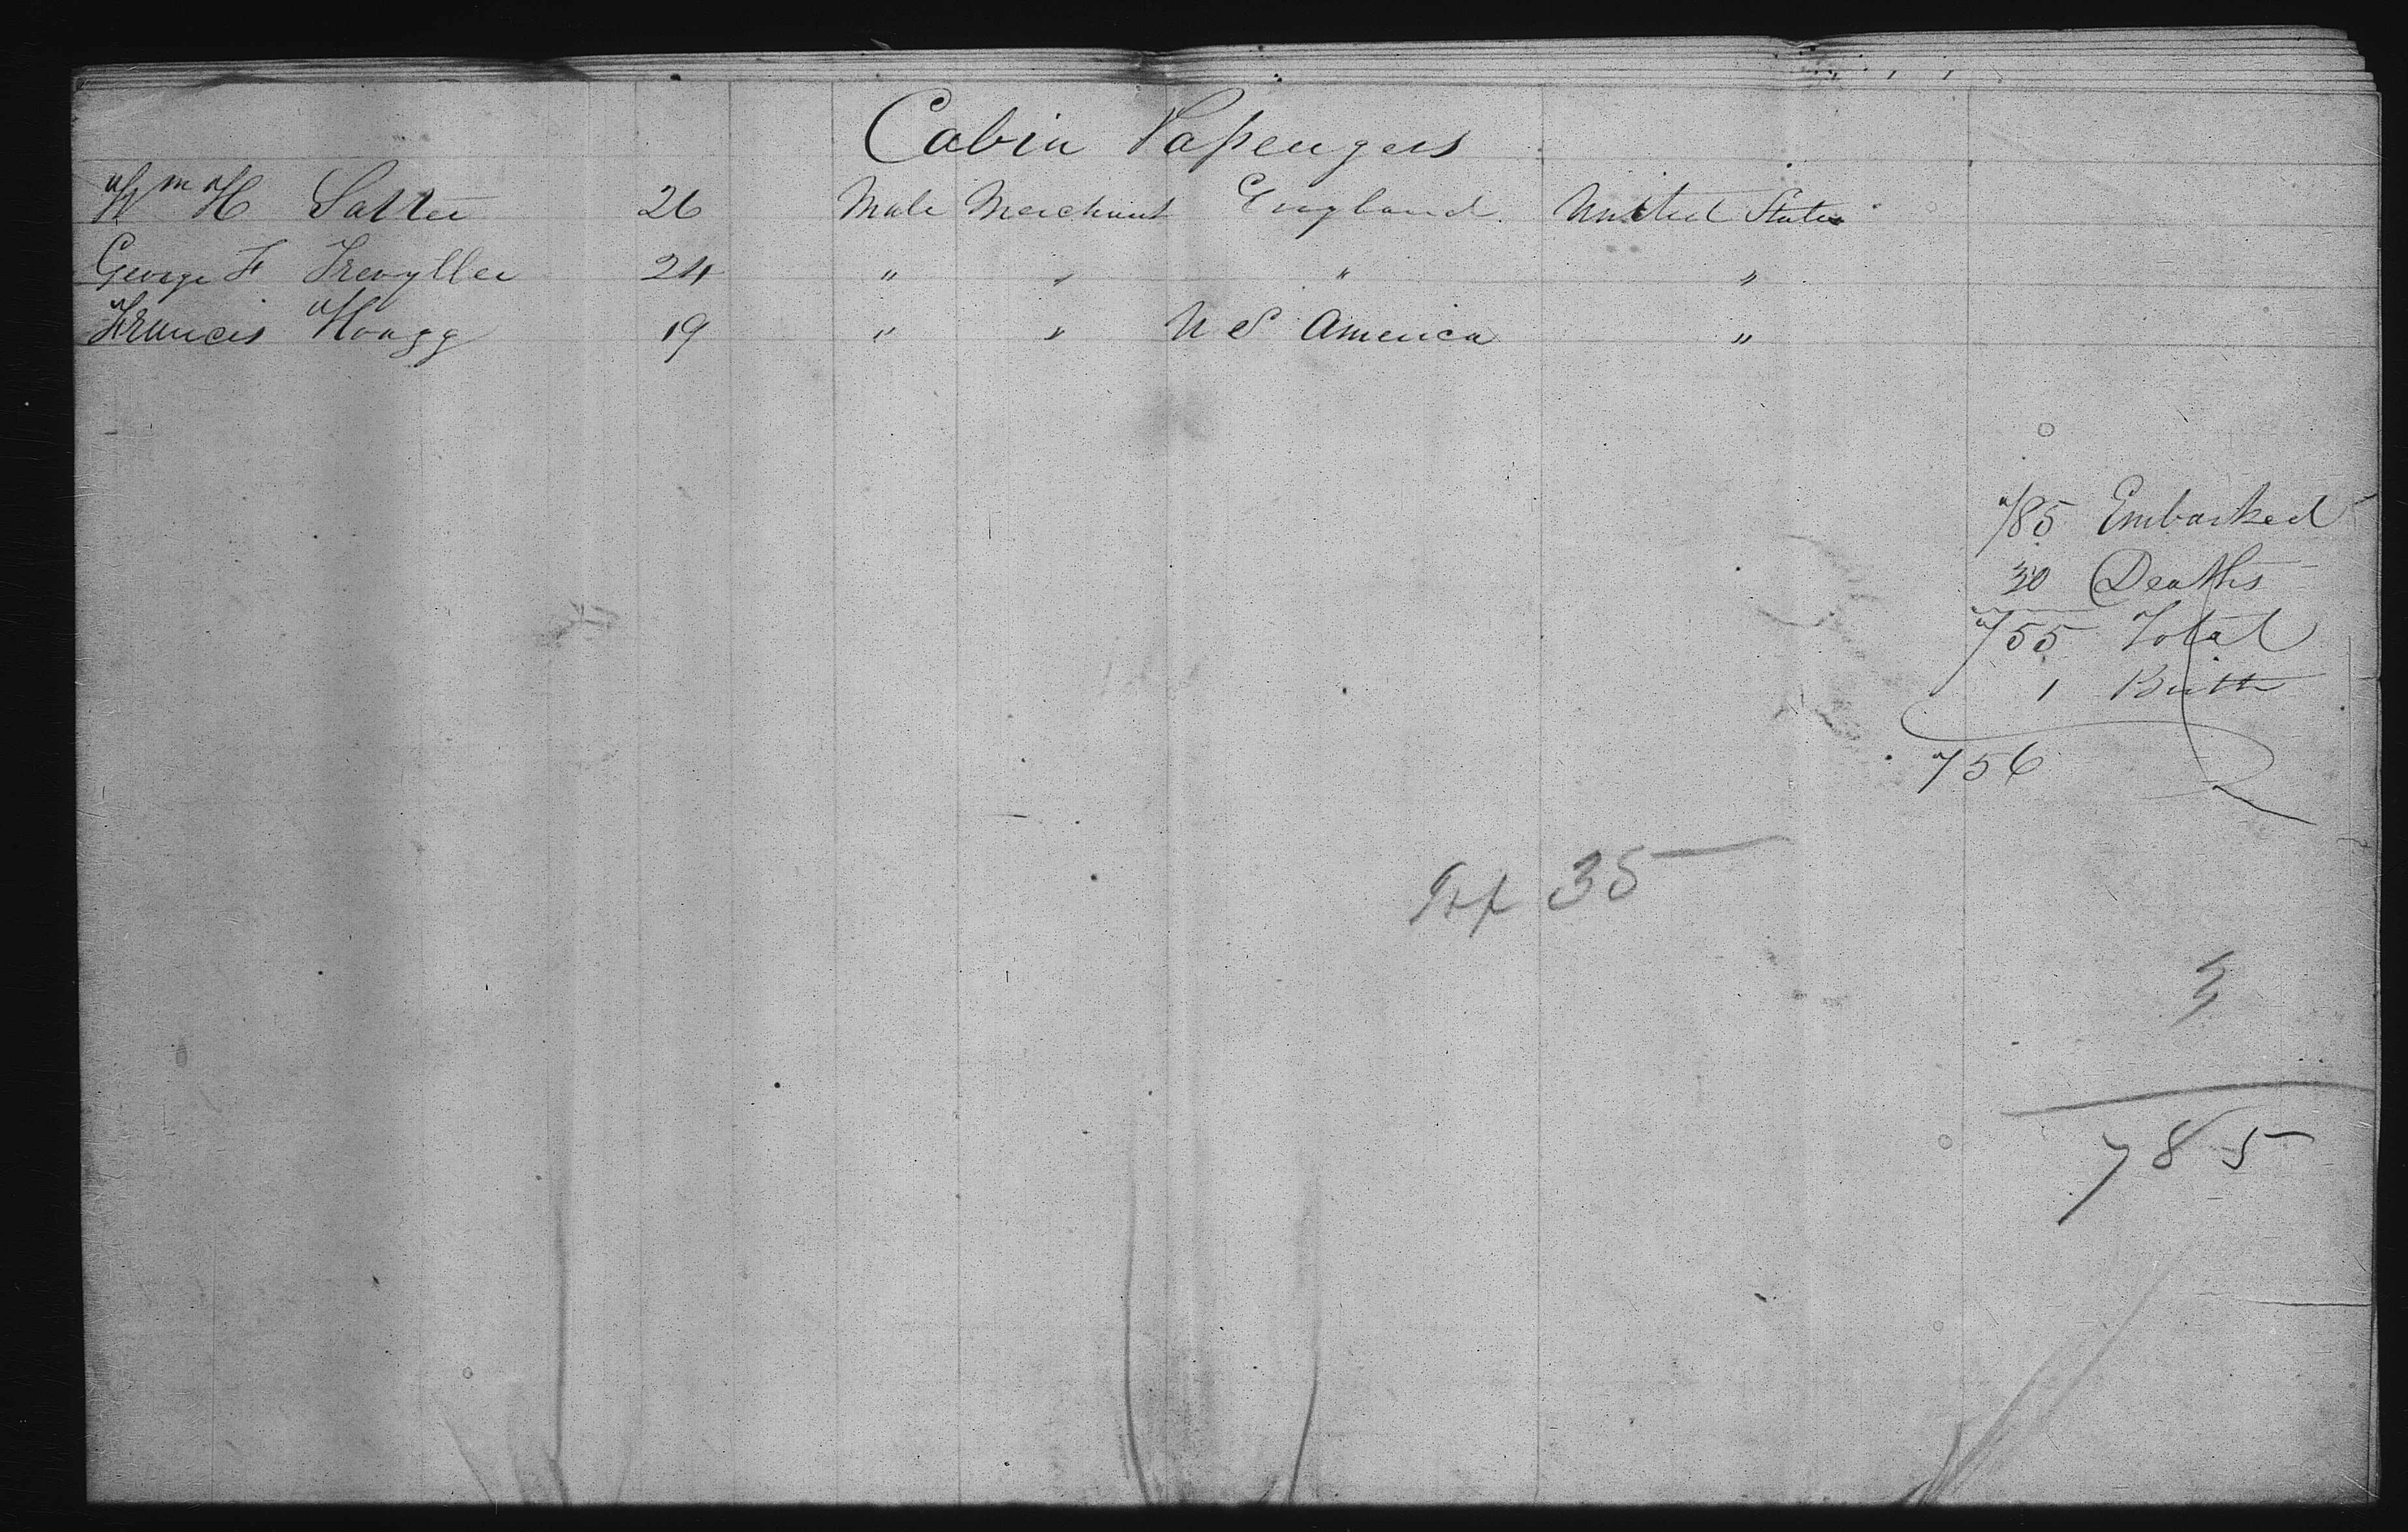 Cabin Passengers
Wm H Salter 26 Male Merchant England United States
George F Trevyller 24 " " " "
Francis Hoagg 19 " " U S America "
785 Embarked
30 Deaths
755 Total
1 Birth
756
35
3
785